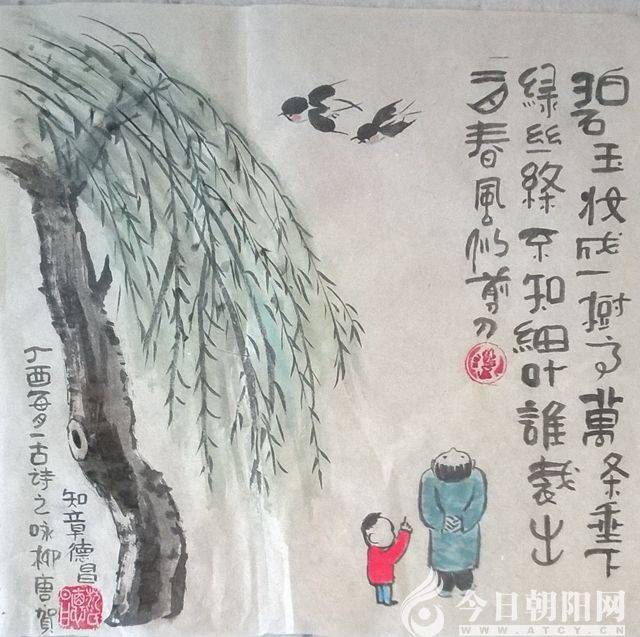 碧玉妆成一樹高萬条垂下
緑丝絛不知細叶誰裁出
二月春風似剪刀
丁酉每夕一古诗之咏柳唐賀
知章德昌
今日朝阳网
WWW.ATCY.CN